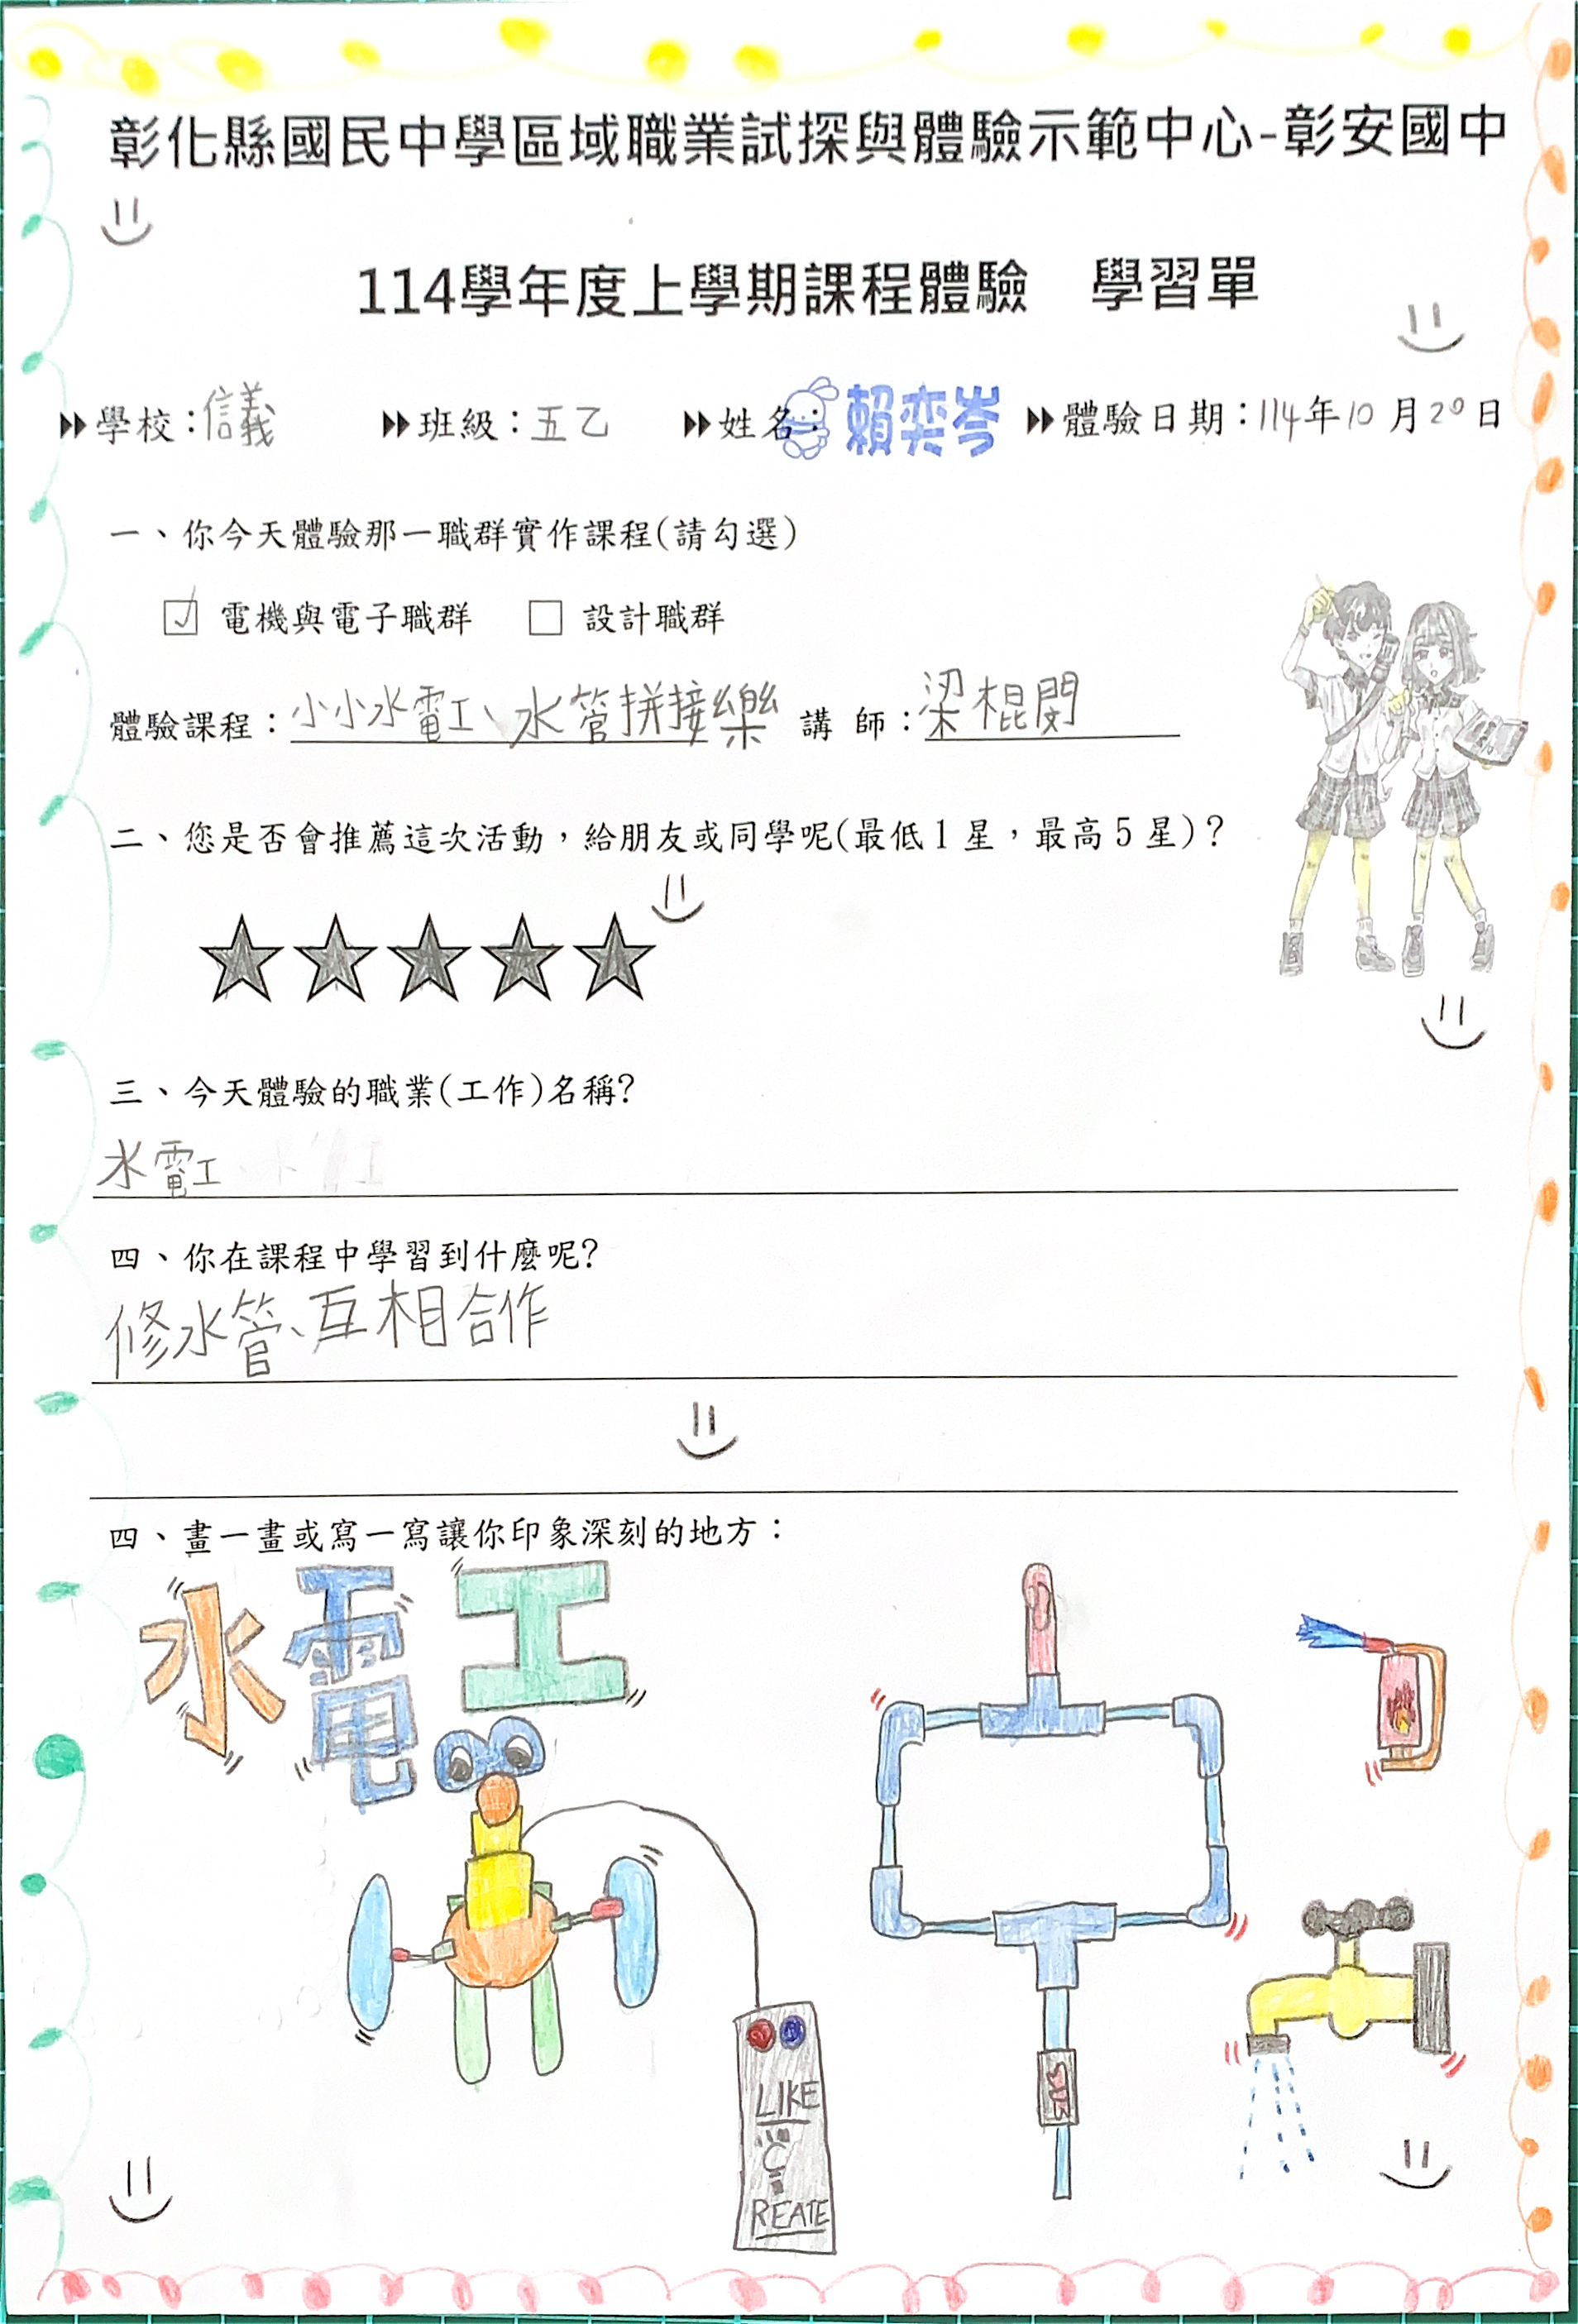 彰化縣國民中學區域職業試探與體驗示範中心-彰安國中
114學年度上學期課程體驗 學習單
學校：信義 班級：五乙 姓名：賴奕岑 體驗日期：114年10月20日
一、你今天體驗那一職群實作課程(請勾選)
☑ 電機與電子職群 □ 設計職群
體驗課程：小小水電工、水管拼接樂 講 師：梁棍閔
二、您是否會推薦這次活動，給朋友或同學呢(最低1星，最高5星)？
三、今天體驗的職業(工作)名稱?
水電工
四、你在課程中學習到什麼呢?
修水管、互相合作
四、畫一畫或寫一寫讓你印象深刻的地方：
水電工
LIKE
C
REATE